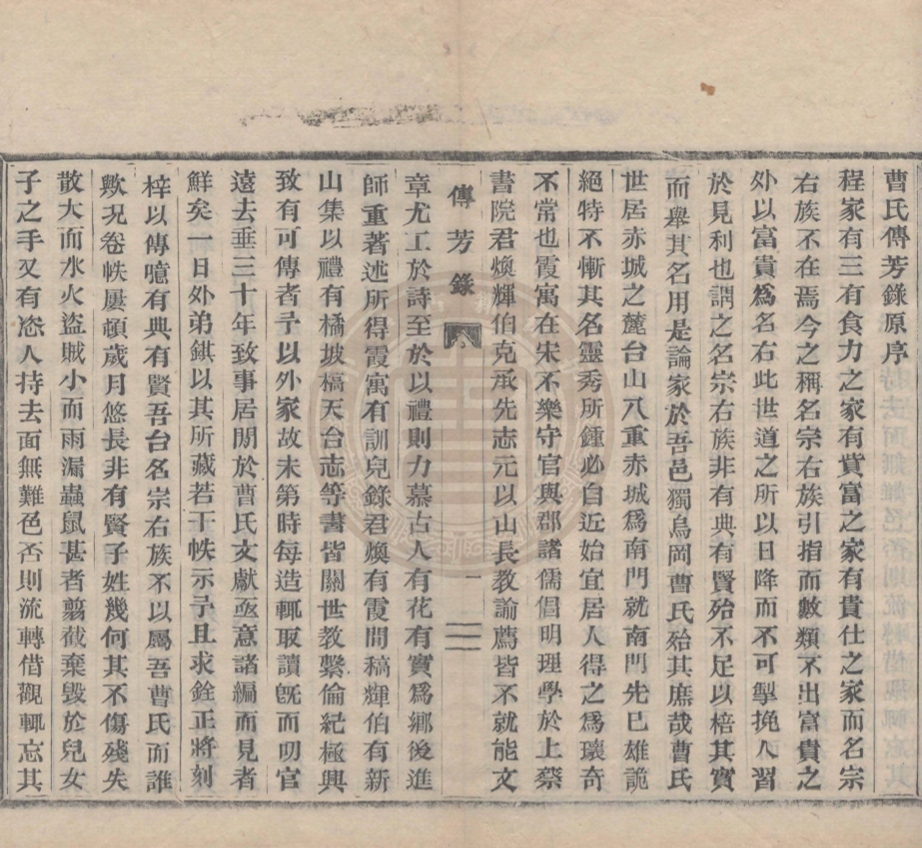 曹氏傳芳錄原序
程家有三有食力之家有貲富之家有貴仕之家而名宗
右族不在焉今之稱名宗右族引指而數類不出富貴之
外以富貴爲名右此世道之所以日降而不可掣挽人習
於見利也謂之名宗右族非有典有賢殆不足以棓其實
而舉其名用是論家於吾邑獨烏岡曹氏殆其庶哉曹氏
世居赤城之麓台山八重赤城爲南門就南門先已雄詭
絕特不慚其名靈秀所鍾必自近始宜居人得之爲瓌奇
不常也霞寓在宋不樂守官與郡諸儒倡明理學於上蔡
書院君煥輝伯克承先志元以山長教諭薦皆不就能文
傳芳錄
一
章尤工於詩至於以禮則力慕古人有花有實爲鄉後進
師重著述所得霞寓有訓兒錄君煥有霞間稿輝伯有新
山集以禮有橘坡稿天台志等書皆關世教繫倫紀極興
致有可傳者予以外家故未第時每造輒取讀旣而叨官
遠去垂三十年致事居閒於曹氏文獻亟意諸編而見者
鮮矣一日外弟錤以其所藏若干帙示予且求銓正將刻
梓以傳噫有典有賢吾台名宗右族不以屬吾曹氏而誰
歟况卷帙屢頓歲月悠長非有賢子姓幾何其不傷殘失
散大而水火盜賊小而雨漏蟲鼠甚者翦截棄毀於兒女
子之手又有恣人持去面無難色否則流轉借觀輒忘其